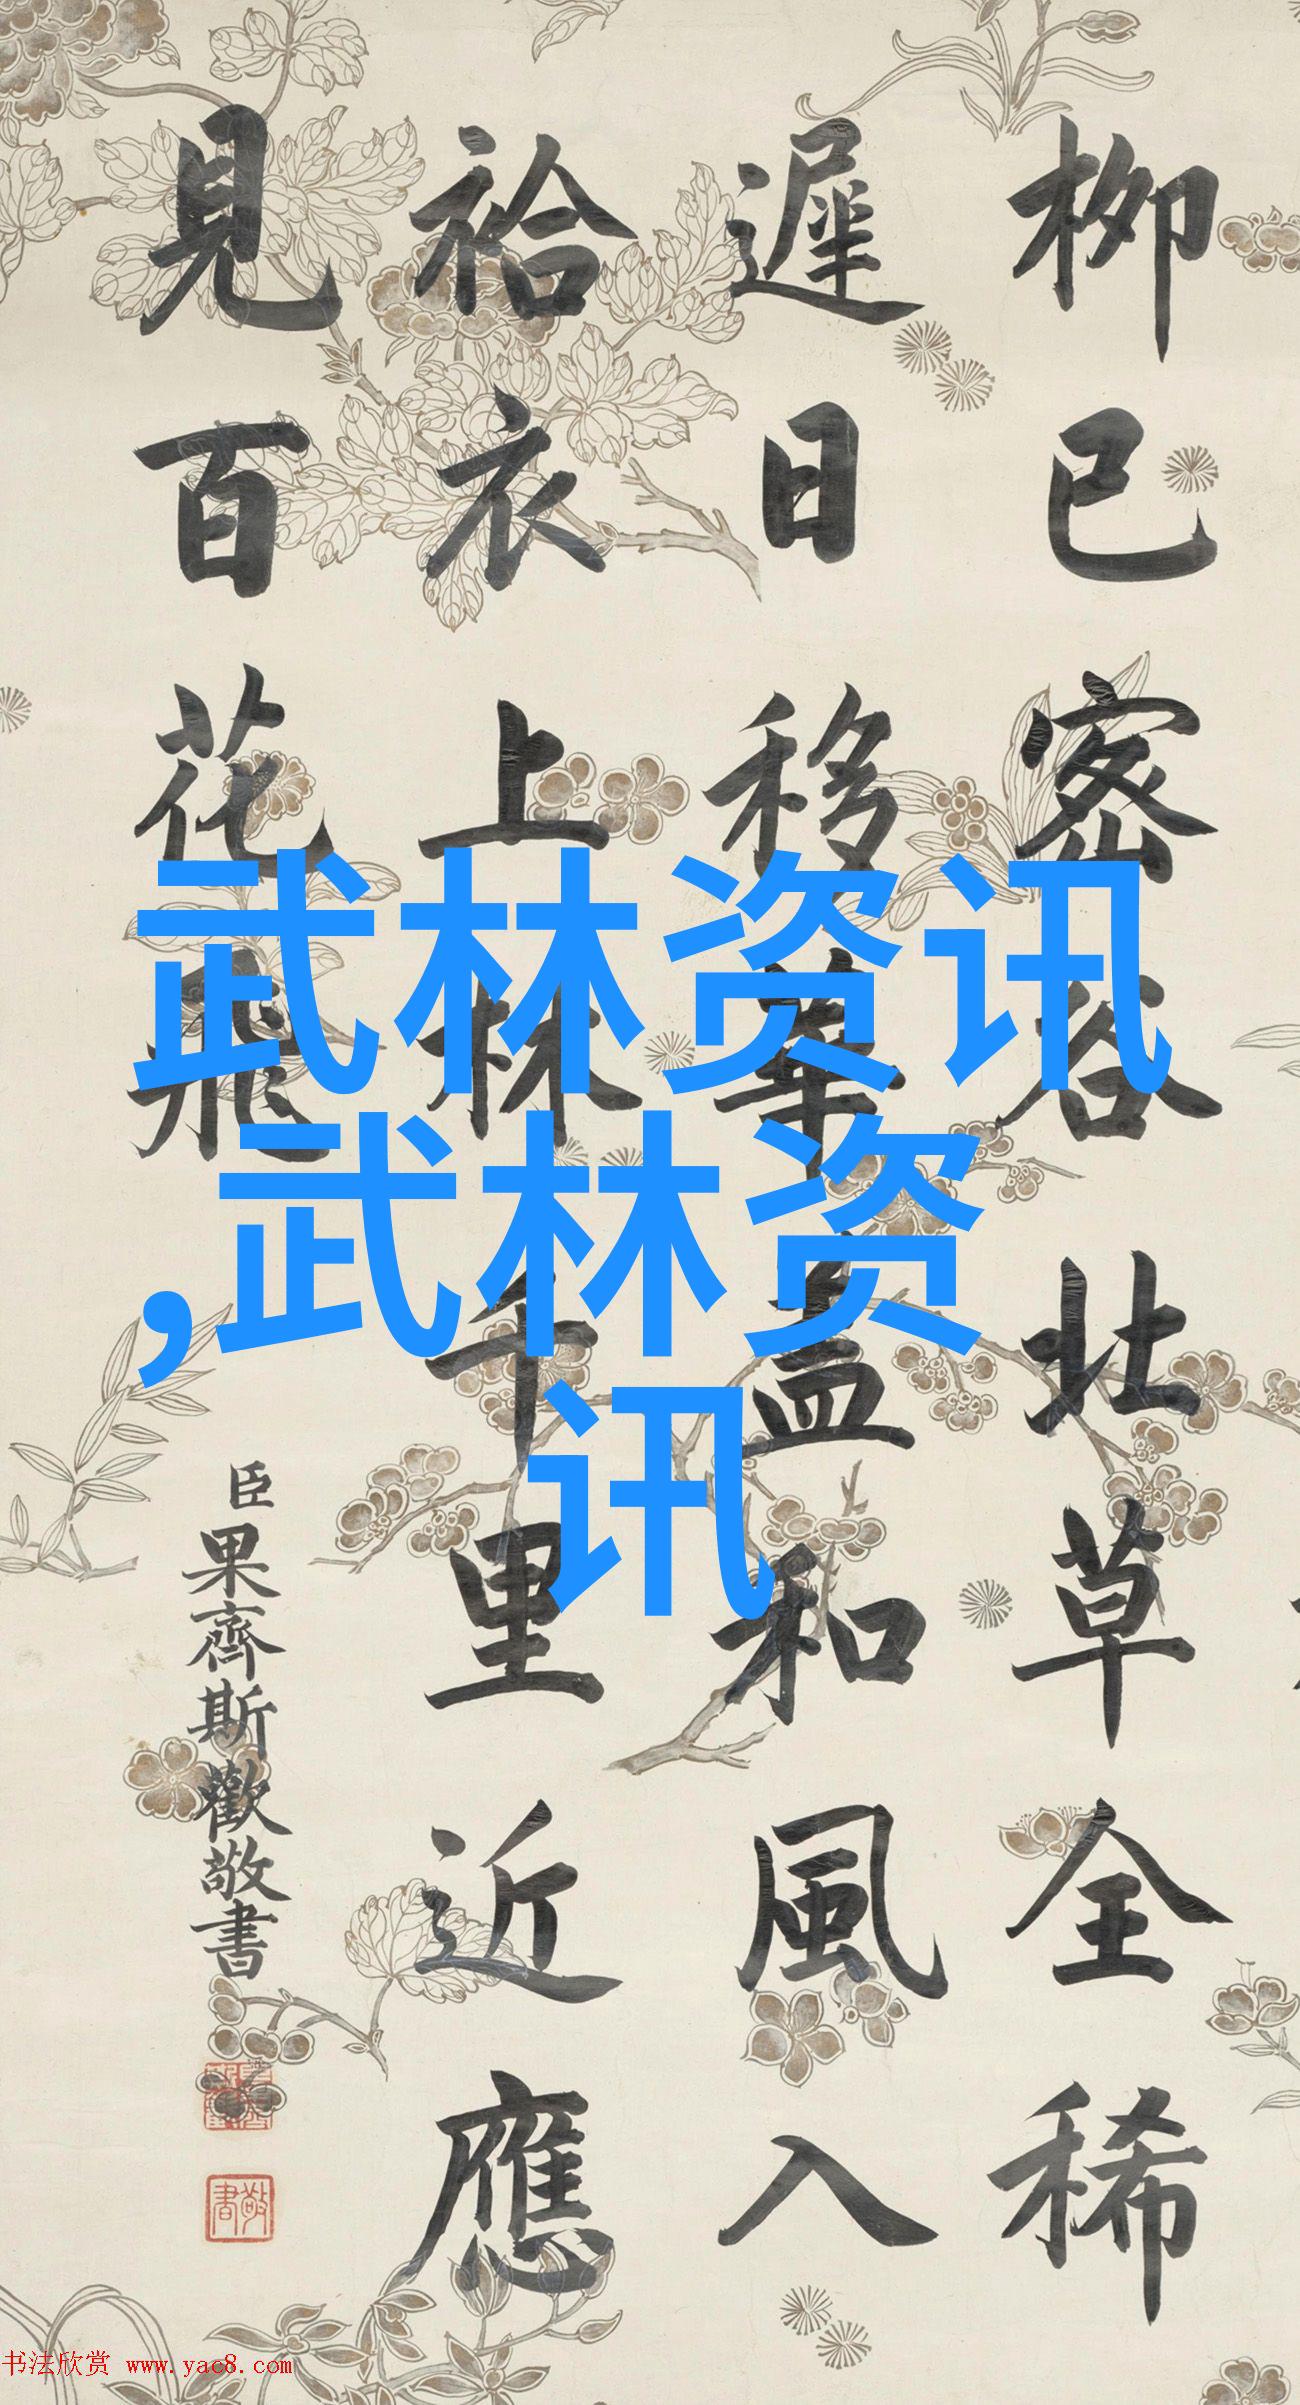 柳已密谷北草全稀
遲日移華蓋和風入
袷衣上林千里近應
見百花飛
臣果齊斯歡敬書
敬書
武林资讯
,武林资
讯
书法欣赏 www.yac8.com